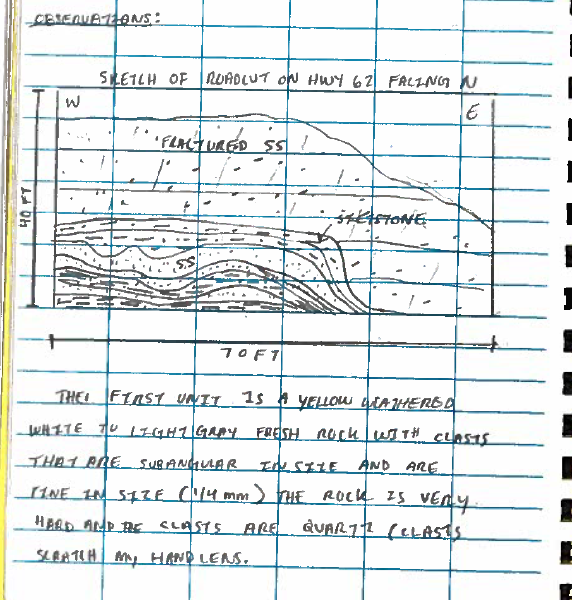 OBSERVATIONS:
SKETCH OF ROADCUT ON HWY 62 FACING N
W
E
FRACTURED SS
40 FT
SILTSTONE
SS
70 FT
THE FIRST UNIT IS A YELLOW WEATHERED
WHITE TO LIGHT GRAY FRESH ROCK WITH CLASTS
THAT ARE SUBANGULAR IN SIZE AND ARE
FINE IN SIZE (1/4 mm) THE ROCK IS VERY
HARD AND THE CLASTS ARE QUARTZ (CLASTS
SCRATCH MY HANDLENS.